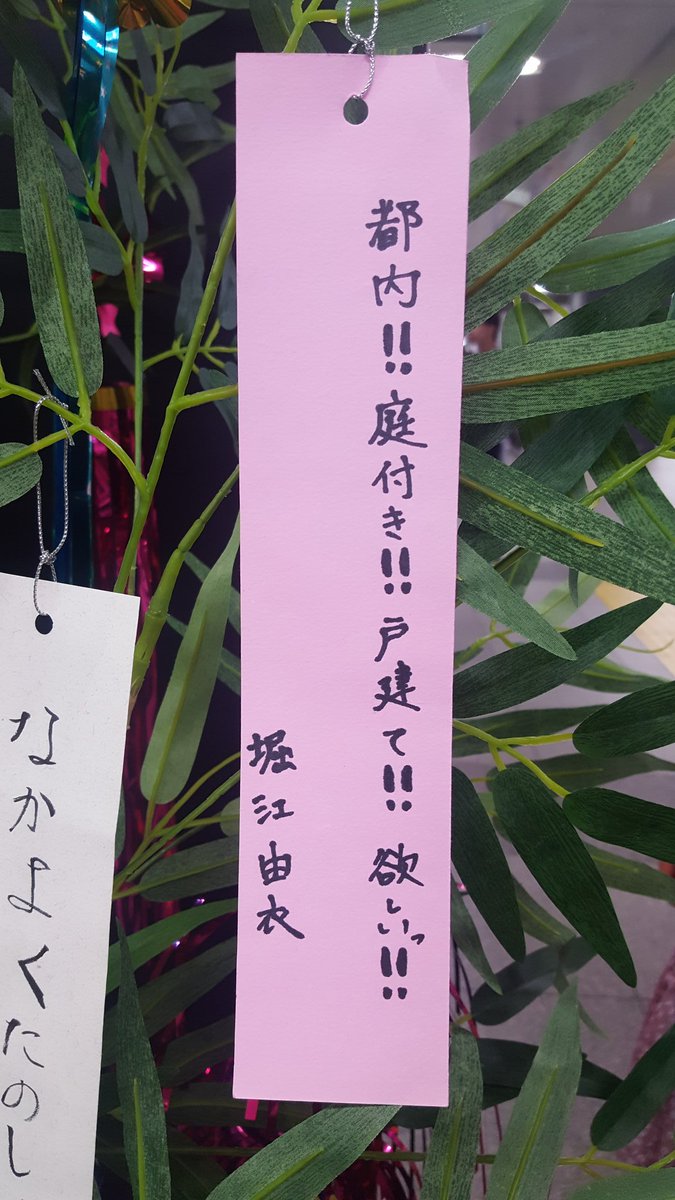 都内!!庭付き!!戸建て!!欲しいっ!!
堀江由衣
なかよくたのし